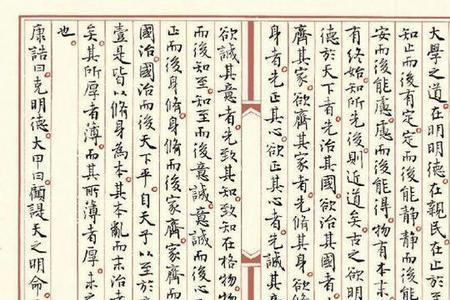 大學之道在明明德在親民在止于
知止而後有定定而後能靜靜而後
安而後能慮慮而後能得物有本末
有終始知所先後則近道矣古之欲明
德於天下者先治其國欲治其國者
齊其家欲齊其家者先脩其身欲脩
身者先正其心欲正其心者先誠其
欲誠其意者先致其知致知在格物物
而後知至知至而後意誠意誠而後心
正而後身脩身脩而後家齊家齊而
國治國治而後天下平自天子以至於
壹是皆以脩身為本其本亂而末治者
矣其所厚者薄而其所薄者厚未之
也
康誥曰克明德大甲曰顧諟天之明命